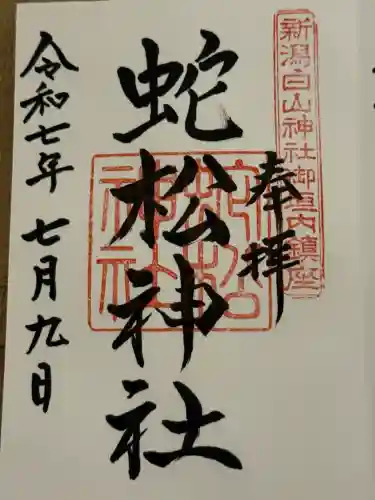 新潟白山神社御垣内鎮座
奉拝
蛇松神社
蛇松神社
令和七年 七月九日